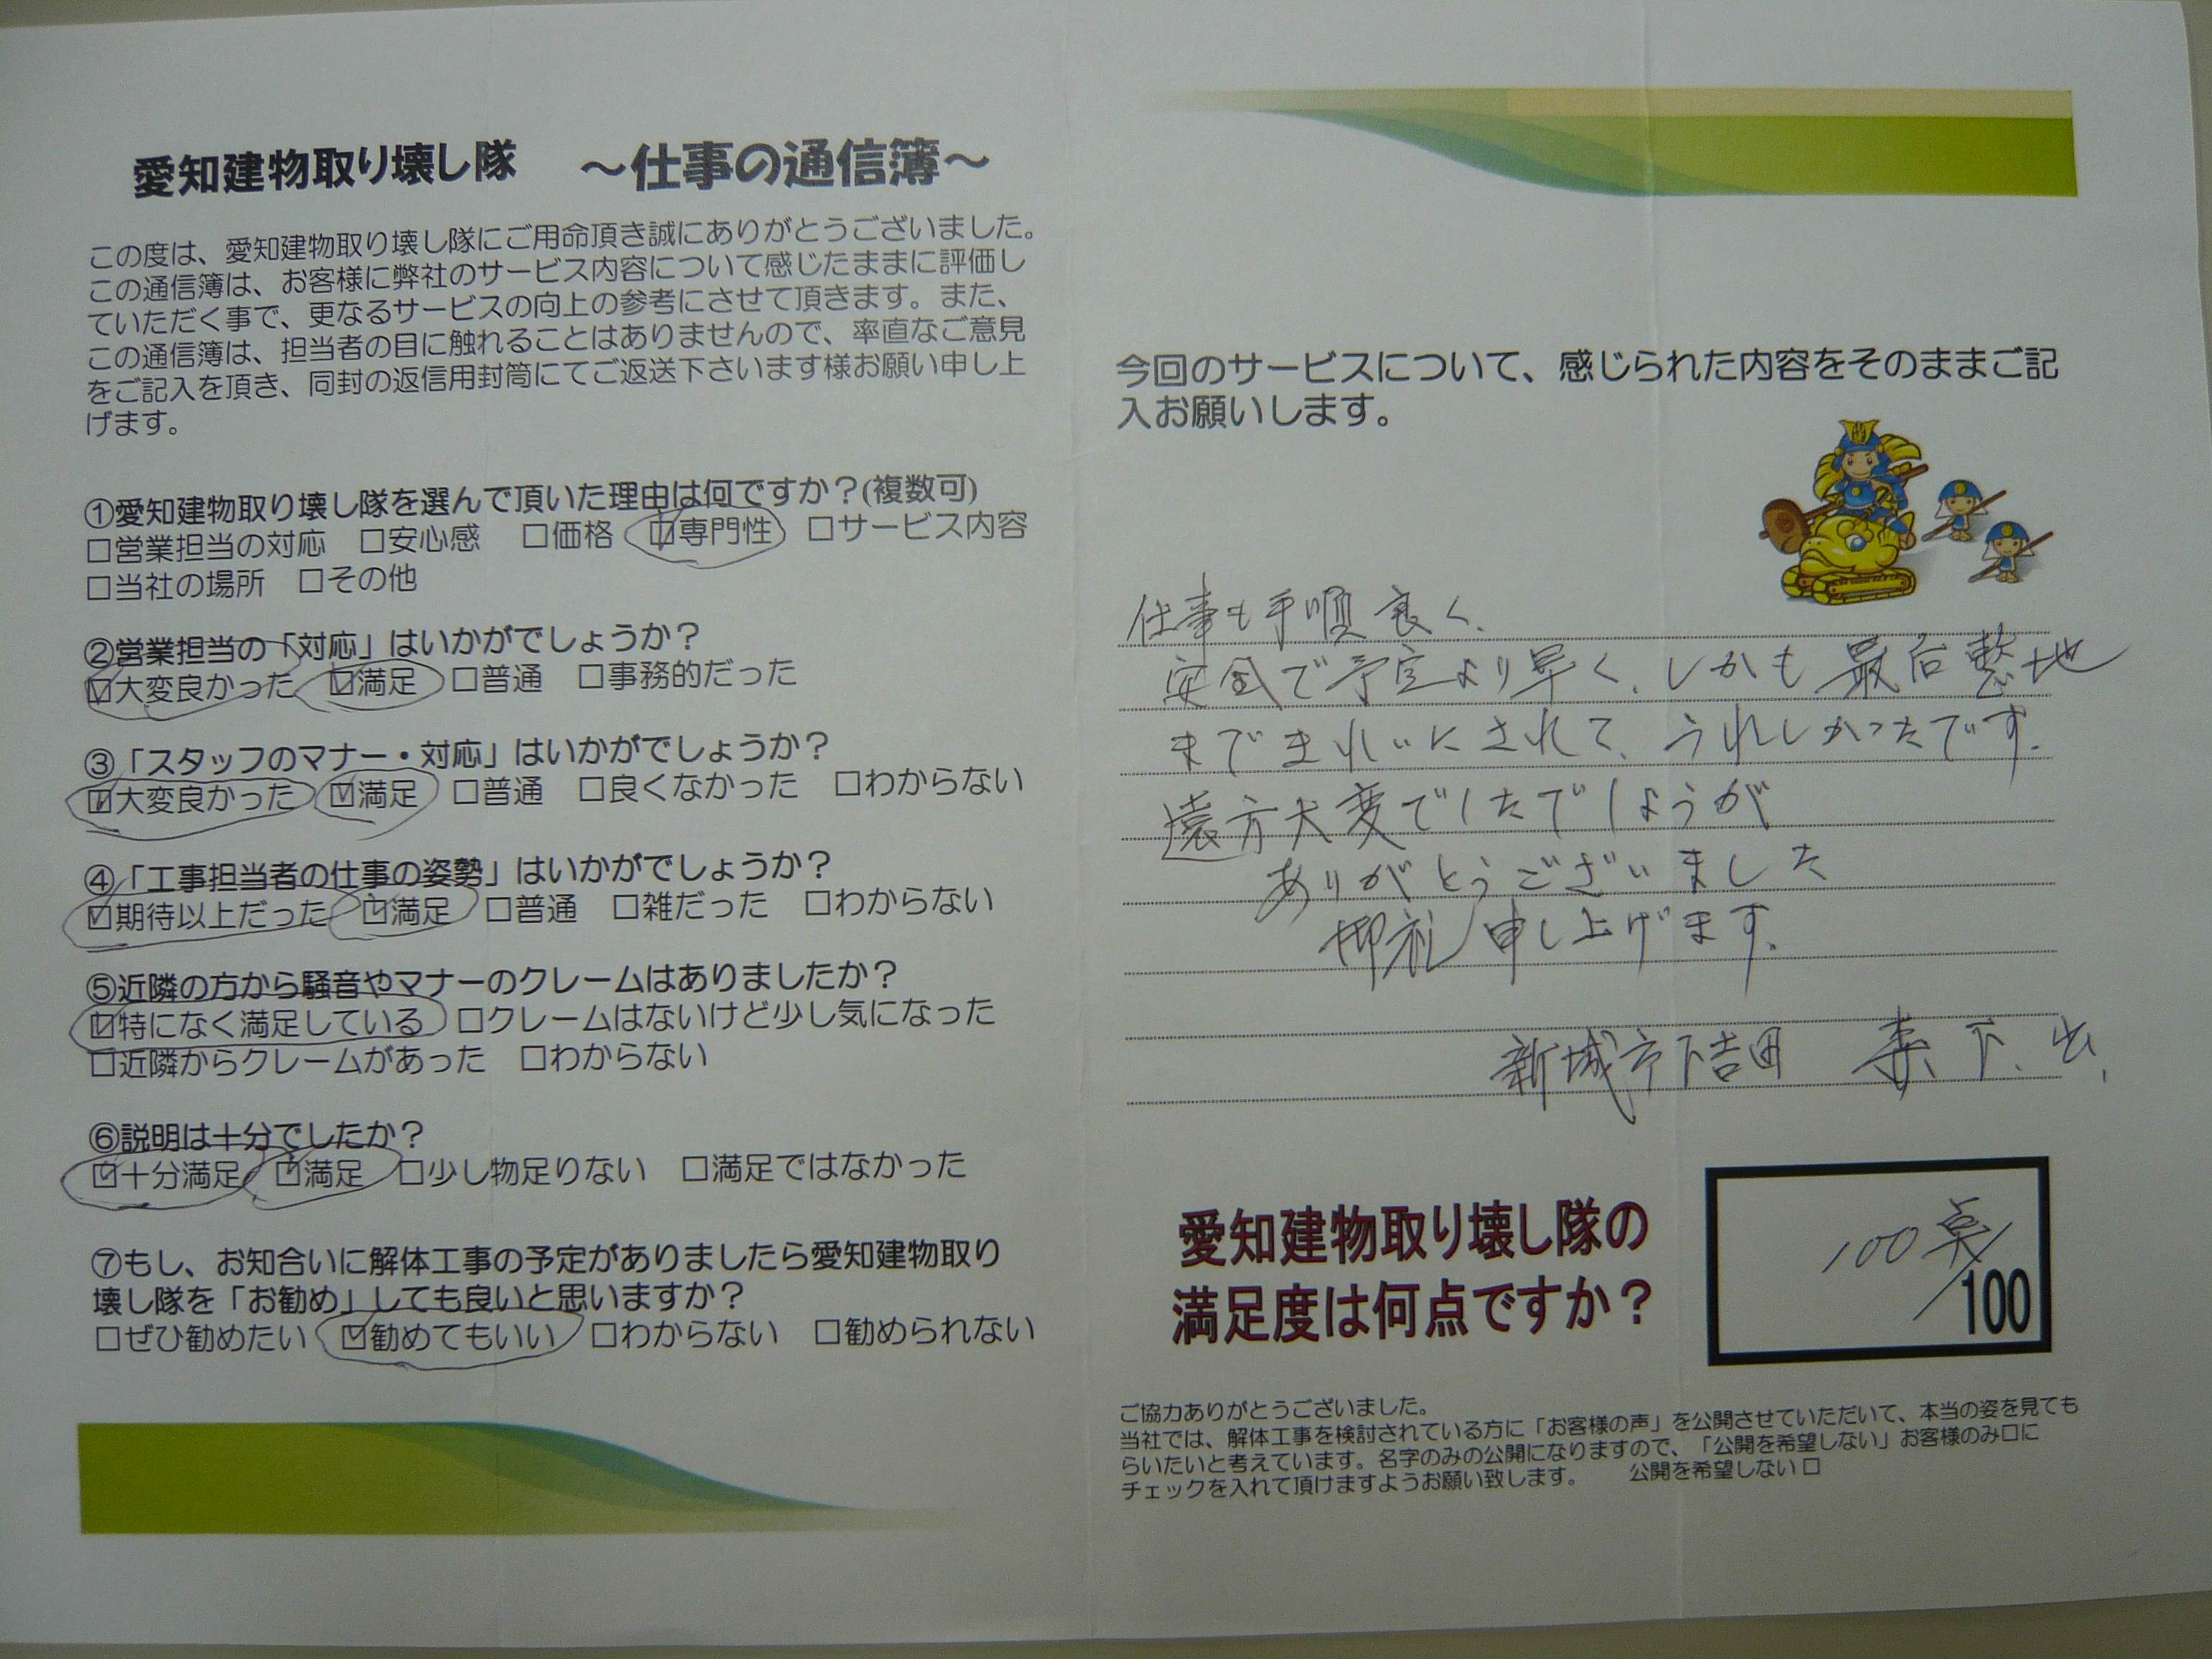 愛知建物取り壊し隊　～仕事の通信簿～
この度は、愛知建物取り壊し隊にご用命頂き誠にありがとうございました。
この通信簿は、お客様に弊社のサービス内容について感じたままに評価し
ていただく事で、更なるサービスの向上の参考にさせて頂きます。また、
この通信簿は、担当者の目に触れることはありませんので、率直なご意見
をご記入を頂き、同封の返信用封筒にてご返送下さいます様お願い申し上
げます。
①愛知建物取り壊し隊を選んで頂いた理由は何ですか？(複数可)
□営業担当の対応　□安心感　□価格　☑専門性　□サービス内容
□当社の場所　□その他
②営業担当の「対応」はいかがでしょうか？
☑大変良かった　☑満足　□普通　□事務的だった
③「スタッフのマナー・対応」はいかがでしょうか？
☑大変良かった　☑満足　□普通　□良くなかった　□わからない
④「工事担当者の仕事の姿勢」はいかがでしょうか？
☑期待以上だった　☑満足　□普通　□雑だった　□わからない
⑤近隣の方から騒音やマナーのクレームはありましたか？
☑特になく満足している　□クレームはないけど少し気になった
□近隣からクレームがあった　□わからない
⑥説明は十分でしたか？
☑十分満足　☑満足　□少し物足りない　□満足ではなかった
⑦もし、お知合いに解体工事の予定がありましたら愛知建物取り
壊し隊を「お勧め」しても良いと思いますか？
□ぜひ勧めたい　☑勧めてもいい　□わからない　□勧められない
今回のサービスについて、感じられた内容をそのままご記
入お願いします。
仕事も手順良く、
安全で予定より早く、しかも最后整地
まできれいにされて、うれしかったです。
遠方大変でしたでしょうが
ありがとうございました
御礼申し上げます。
新城市下吉田　森下
愛知建物取り壊し隊の
満足度は何点ですか？
100点/100
ご協力ありがとうございました。
当社では、解体工事を検討されている方に「お客様の声」を公開させていただいて、本当の姿を見ても
らいたいと考えています。名字のみの公開になりますので、「公開を希望しない」お客様のみ口に
チェックを入れて頂けますようお願い致します。　公開を希望しない□